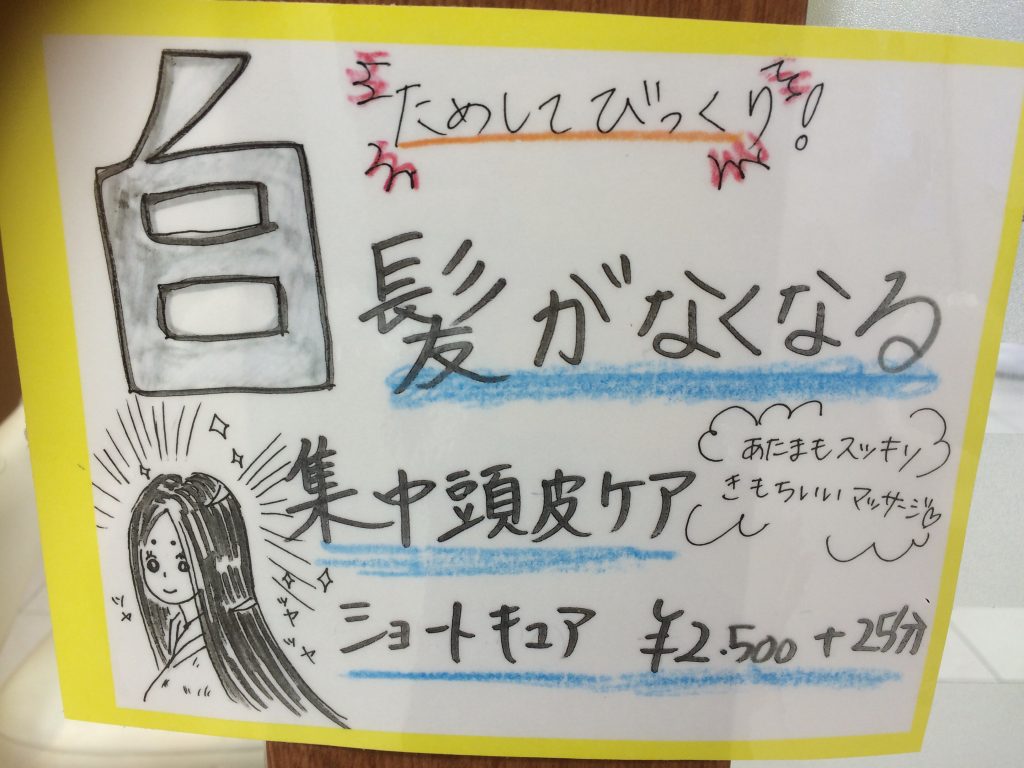 ためしてびっくり!
白髪がなくなる
集中頭皮ケア
あたまもスッキリ
きもちいいマッサージ♡
ショートキュア ¥2.500+25分